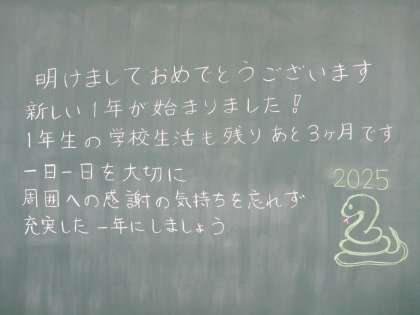 明けましておめでとうございます
新しい1年が始まりました！
1年生の学校生活も残りあと3ヶ月です
一日一日を大切に
周囲への感謝の気持ちを忘れず
充実した一年にしましょう
2025